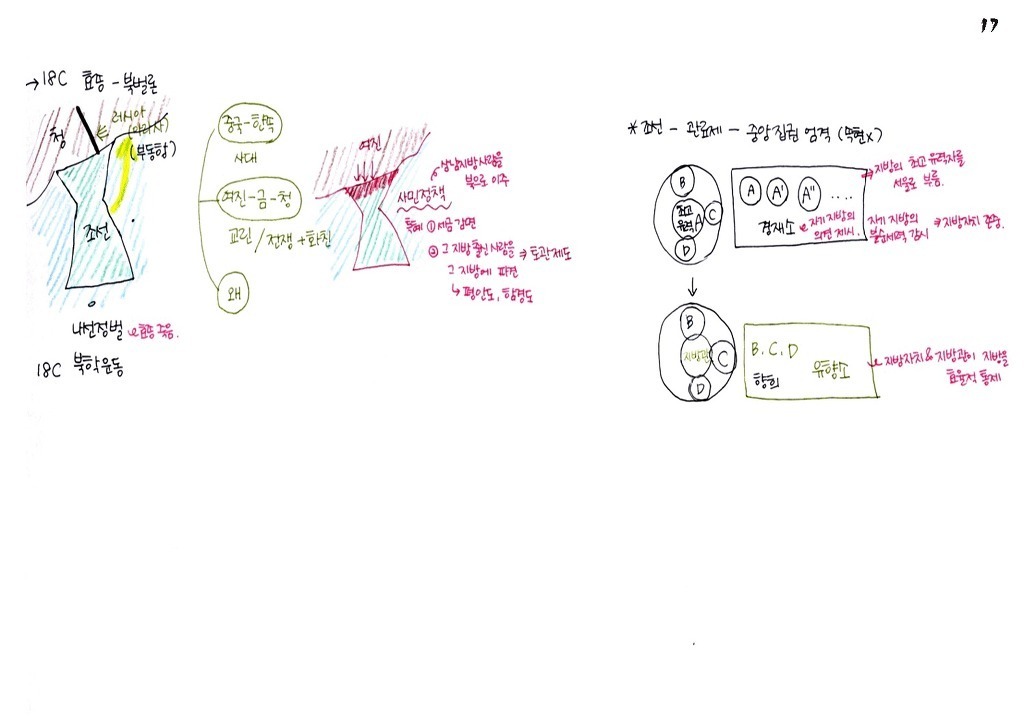 17
→18C 효종 - 북벌론
청
러시아
(아라사)
(부동항)
조선
나선정벌 효종 죽음.
18C 북학운동
중국-한족
사대
여진-금-청
교린 / 전쟁 + 화친
왜
여진
삼남지방 사람을
북으로 이주
사민정책
특혜 ① 세금 감면
② 그 지방 출신 사람을 ⇒ 토관제도
그 지방에 파견
↳ 평안도, 함경도
* 조선 - 관료제 - 중앙집권 엄격 (속현X)
B
최고
유력 A
C
D
A A' A" ....
경재소
⇒ 지방의 최고 유력자를
서울로 부름.
자기 지방의
의견 제시.
자기 지방의
불순세력 감시
⇒ 지방자치 존중.
B
지방관
C
D
B. C. D
향회 유향소
지방자치 & 지방관이 지방을
효율적 통제